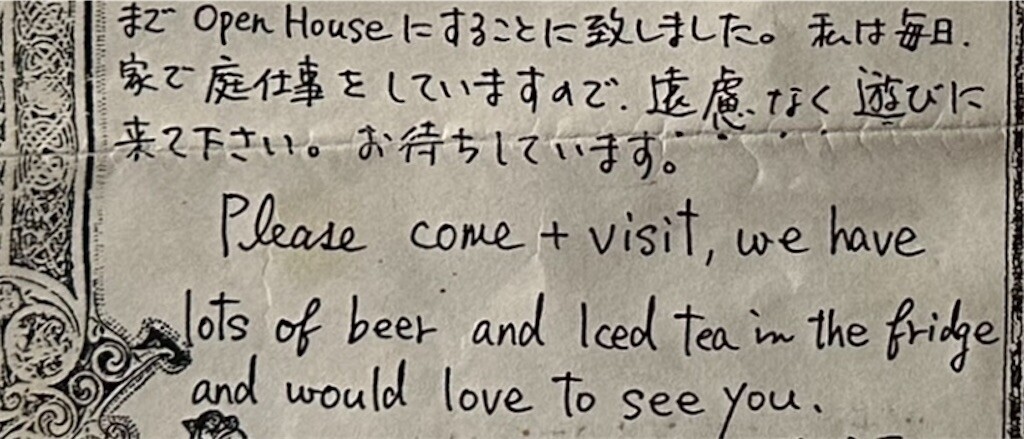 まで Open House にすることに致しました。私は毎日、
家で庭仕事をしていますので、遠慮なく遊びに
来て下さい。お待ちしています。
Please come + visit, we have
lots of beer and Iced tea in the fridge
and would love to see you.